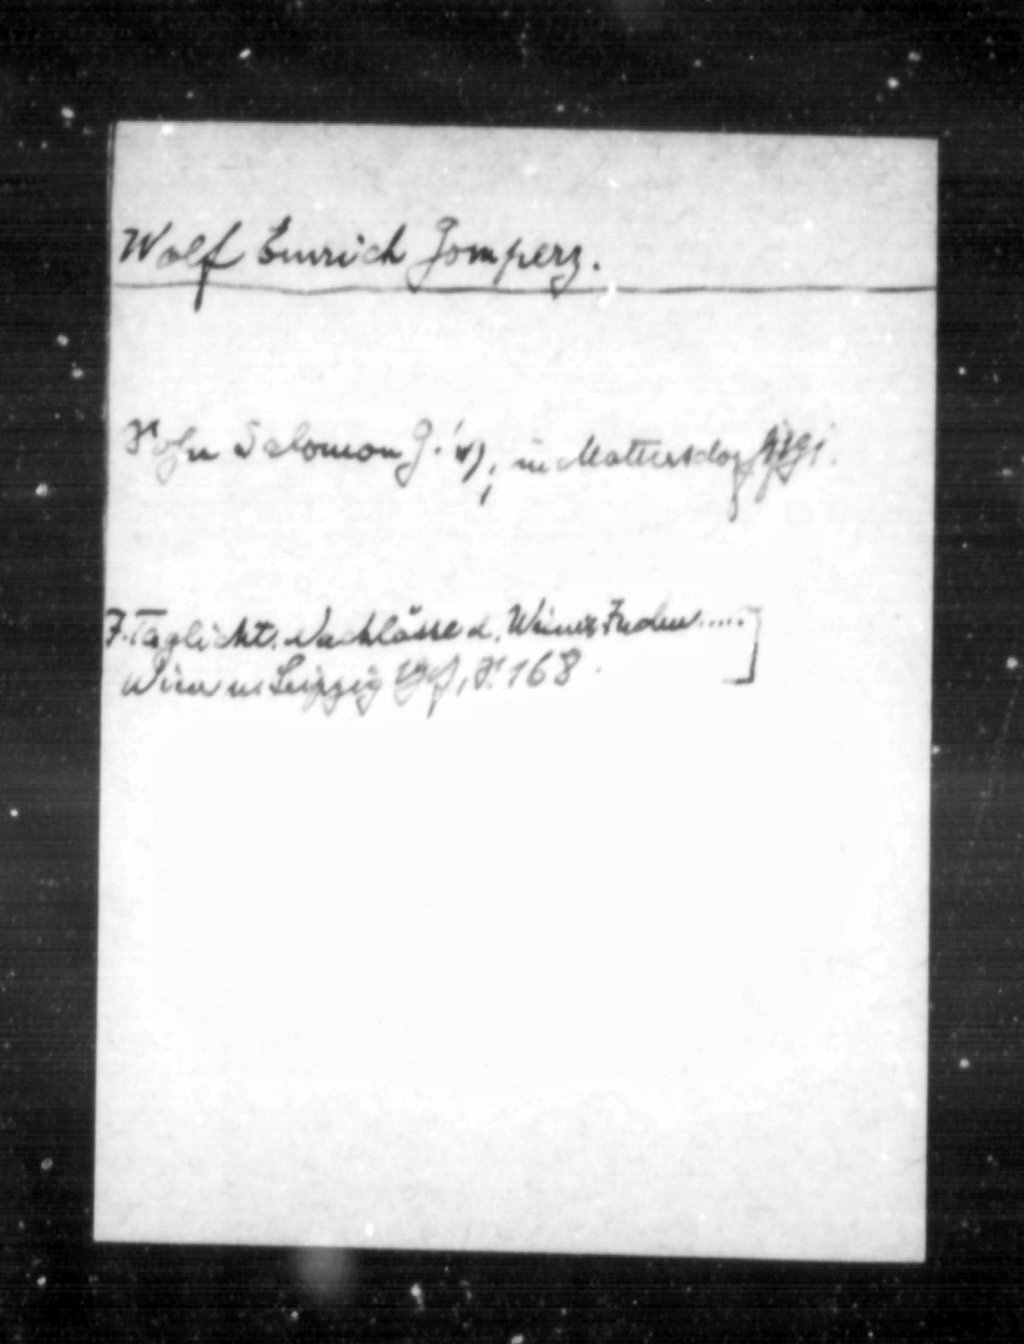 Wolf Emrich Gomperz.
Sohn Salomon G.'s), in Mattersdorf
J. Taglicht, Nachlässe d. Wiener Juden.....]
Wien u. Leipzig S. 168